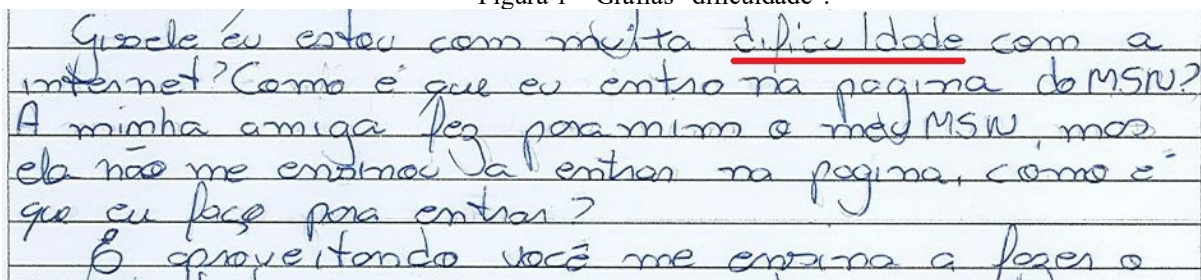 Figura 1 – Grafias "dificuldade".
Gisele eu estou com muita dificuldade com a
internet? Como é que eu entro na pagina do MSN?
A minha amiga fez para mim o meu MSN, mas
ela não me ensinou a entrar na pagina, como é
que eu faço para entrar?
E aproveitando você me ensina a fazer o